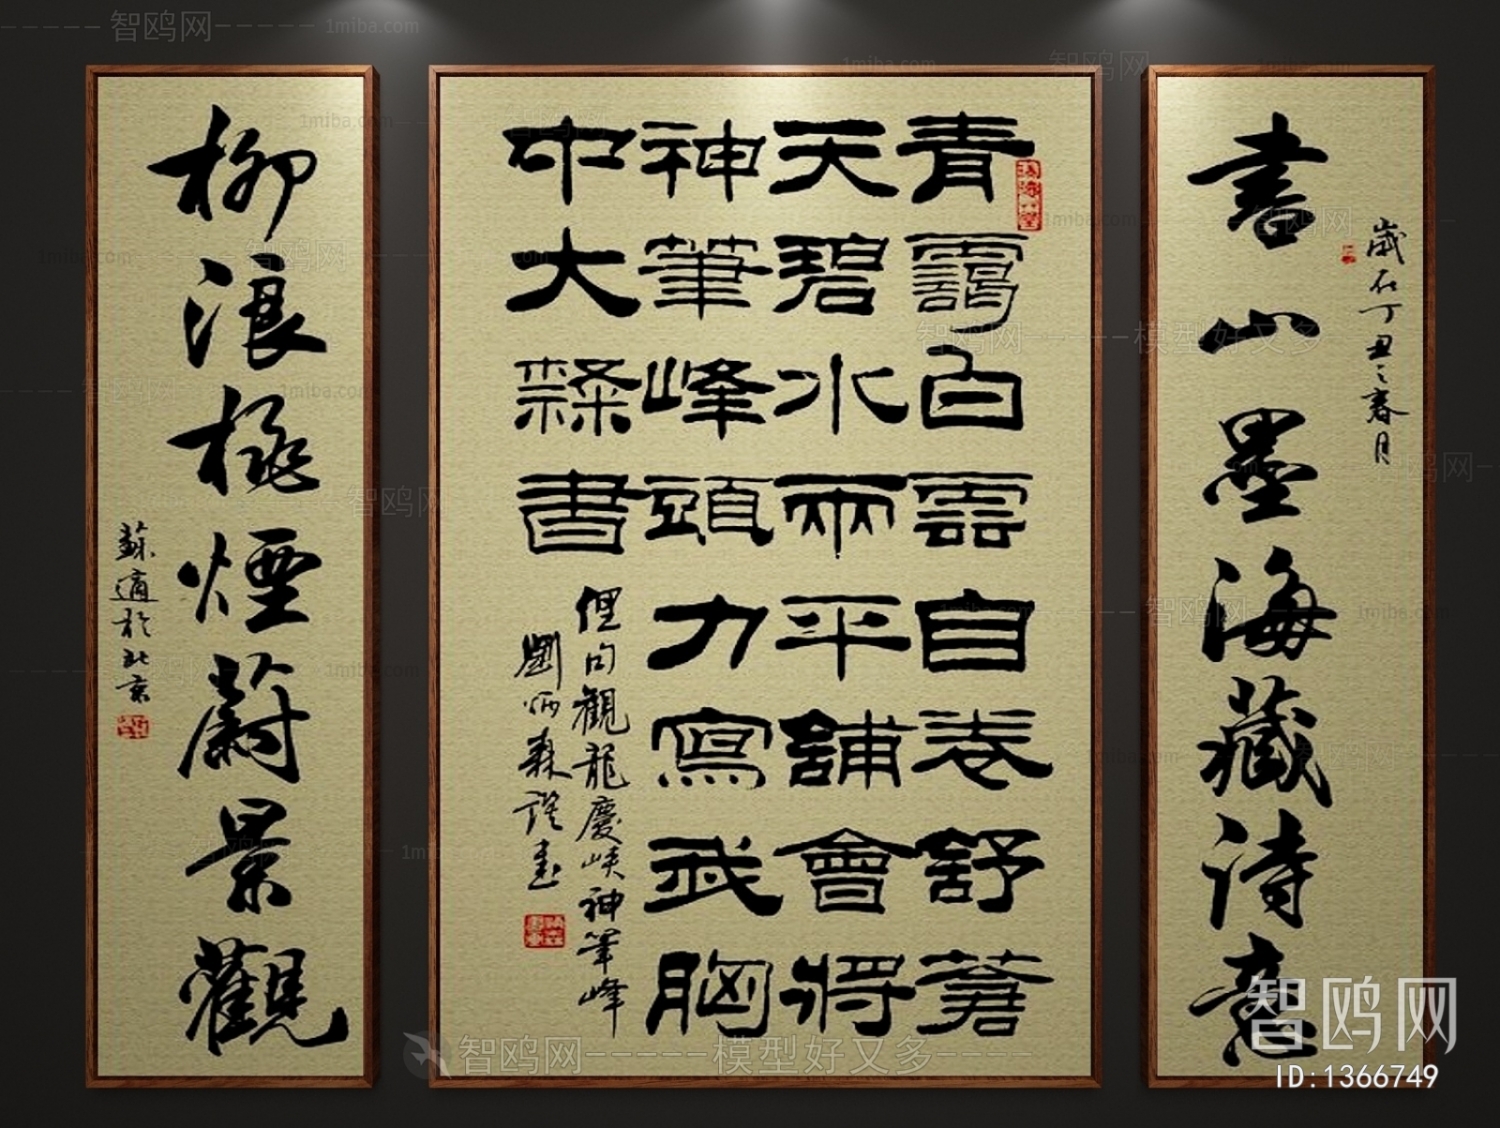 書山墨海藏詩意
歲在丁丑之春月
青靄白雲自卷舒蒼
天碧水兩平舖會將
神筆峰頭力寫我胸
中大隸書
俚句觀龍慶峽神筆峰
劉炳森謹書
柳浪桃煙蔚景觀
蘇適於北京
智鸥网-----模型好又多
1miba.com
智鸥网
ID:1366749